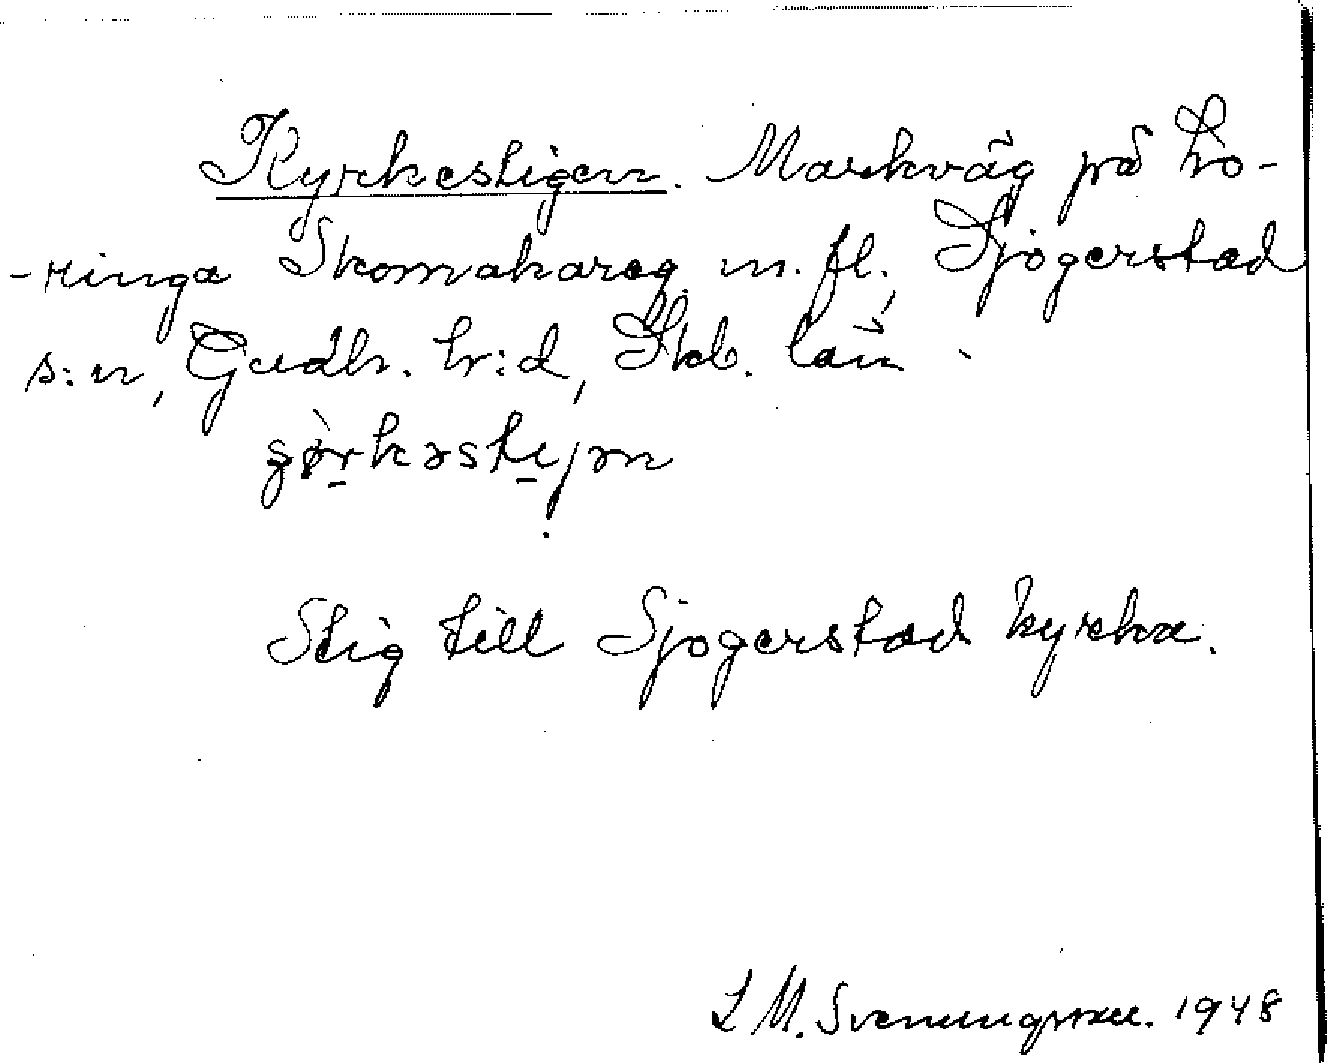 Kyrkestigen. Markväg på Lo-
-ringa Skomakareg. m. fl., Sjogerstad
s:n, Gudh. h:d, Skb. län.
Stig till Sjogerstad kyrka.
L M. Svenungsson. 1948